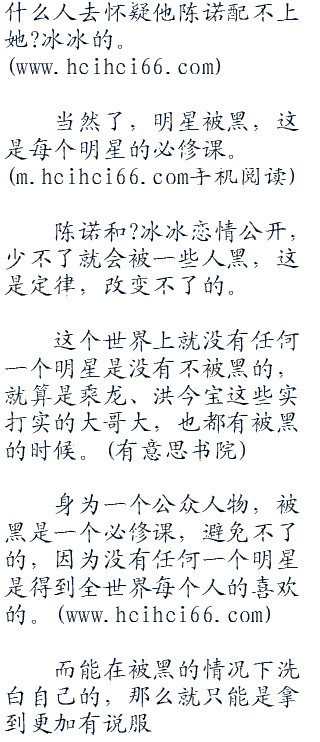 什么人去怀疑他陈诺配不上
她?冰冰的。
(www.hcihci66.com)
当然了，明星被黑，这
是每个明星的必修课。
(m.hcihci66.com手机阅读)
陈诺和?冰冰恋情公开，
少不了就会被一些人黑，这
是定律，改变不了的。
这个世界上就没有任何
一个明星是没有不被黑的，
就算是乘龙、洪今宝这些实
打实的大哥大，也都有被黑
的时候。(有意思书院)
身为一个公众人物，被
黑是一个必修课，避免不了
的，因为没有任何一个明星
是得到全世界每个人的喜欢
的。(www.hcihci66.com)
而能在被黑的情况下洗
白自己的，那么就只能是拿
到更加有说服